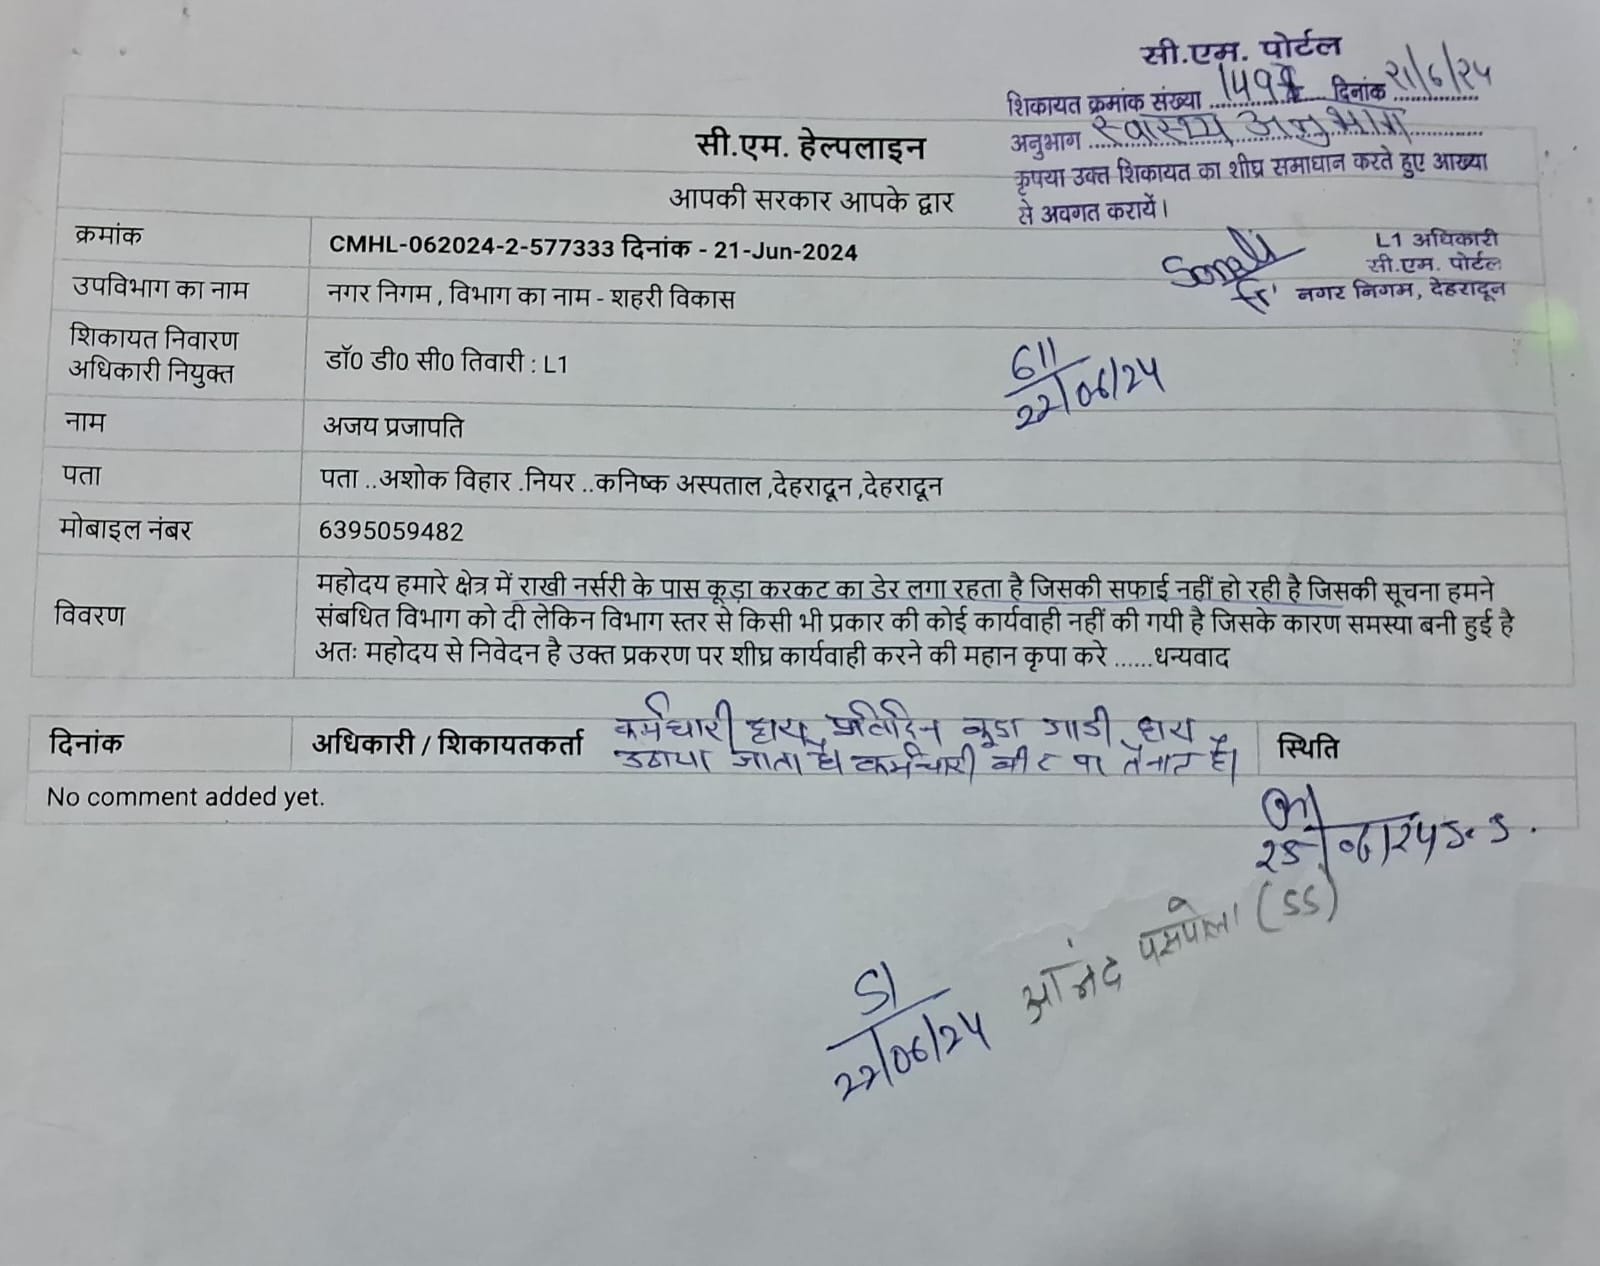 सी.एम. पोर्टल
शिकायत क्रमांक संख्या ........ दिनांक २१/६/२५
अनुभाग स्वास्थ्य अनुभाग
कृपया उक्त शिकायत का शीघ्र समाधान करते हुए आख्या
से अवगत करायें।
L1 अधिकारी
सी.एम. पोर्टल
नगर निगम, देहरादून
सी.एम. हेल्पलाइन
आपकी सरकार आपके द्वार
क्रमांक CMHL-062024-2-577333 दिनांक - 21-Jun-2024
उपविभाग का नाम नगर निगम , विभाग का नाम - शहरी विकास
शिकायत निवारण
अधिकारी नियुक्त डॉ0 डी0 सी0 तिवारी : L1
22/06/24
नाम अजय प्रजापति
पता पता ..अशोक विहार .नियर ..कनिष्क अस्पताल ,देहरादून ,देहरादून
मोबाइल नंबर 6395059482
विवरण महोदय हमारे क्षेत्र में राखी नर्सरी के पास कूड़ा करकट का डेर लगा रहता है जिसकी सफाई नहीं हो रही है जिसकी सूचना हमने
संबधित विभाग को दी लेकिन विभाग स्तर से किसी भी प्रकार की कोई कार्यवाही नहीं की गयी है जिसके कारण समस्या बनी हुई है
अतः महोदय से निवेदन है उक्त प्रकरण पर शीघ्र कार्यवाही करने की महान कृपा करे ......धन्यवाद
कर्मचारी द्वारा प्रतिदिन कूडा गाडी द्वारा
उठाया जाता है। कर्मचारी बीट पर तैनात है।
दिनांक अधिकारी / शिकायतकर्ता स्थिति
No comment added yet.
25/06/24
आनंद (SS)
22/06/24